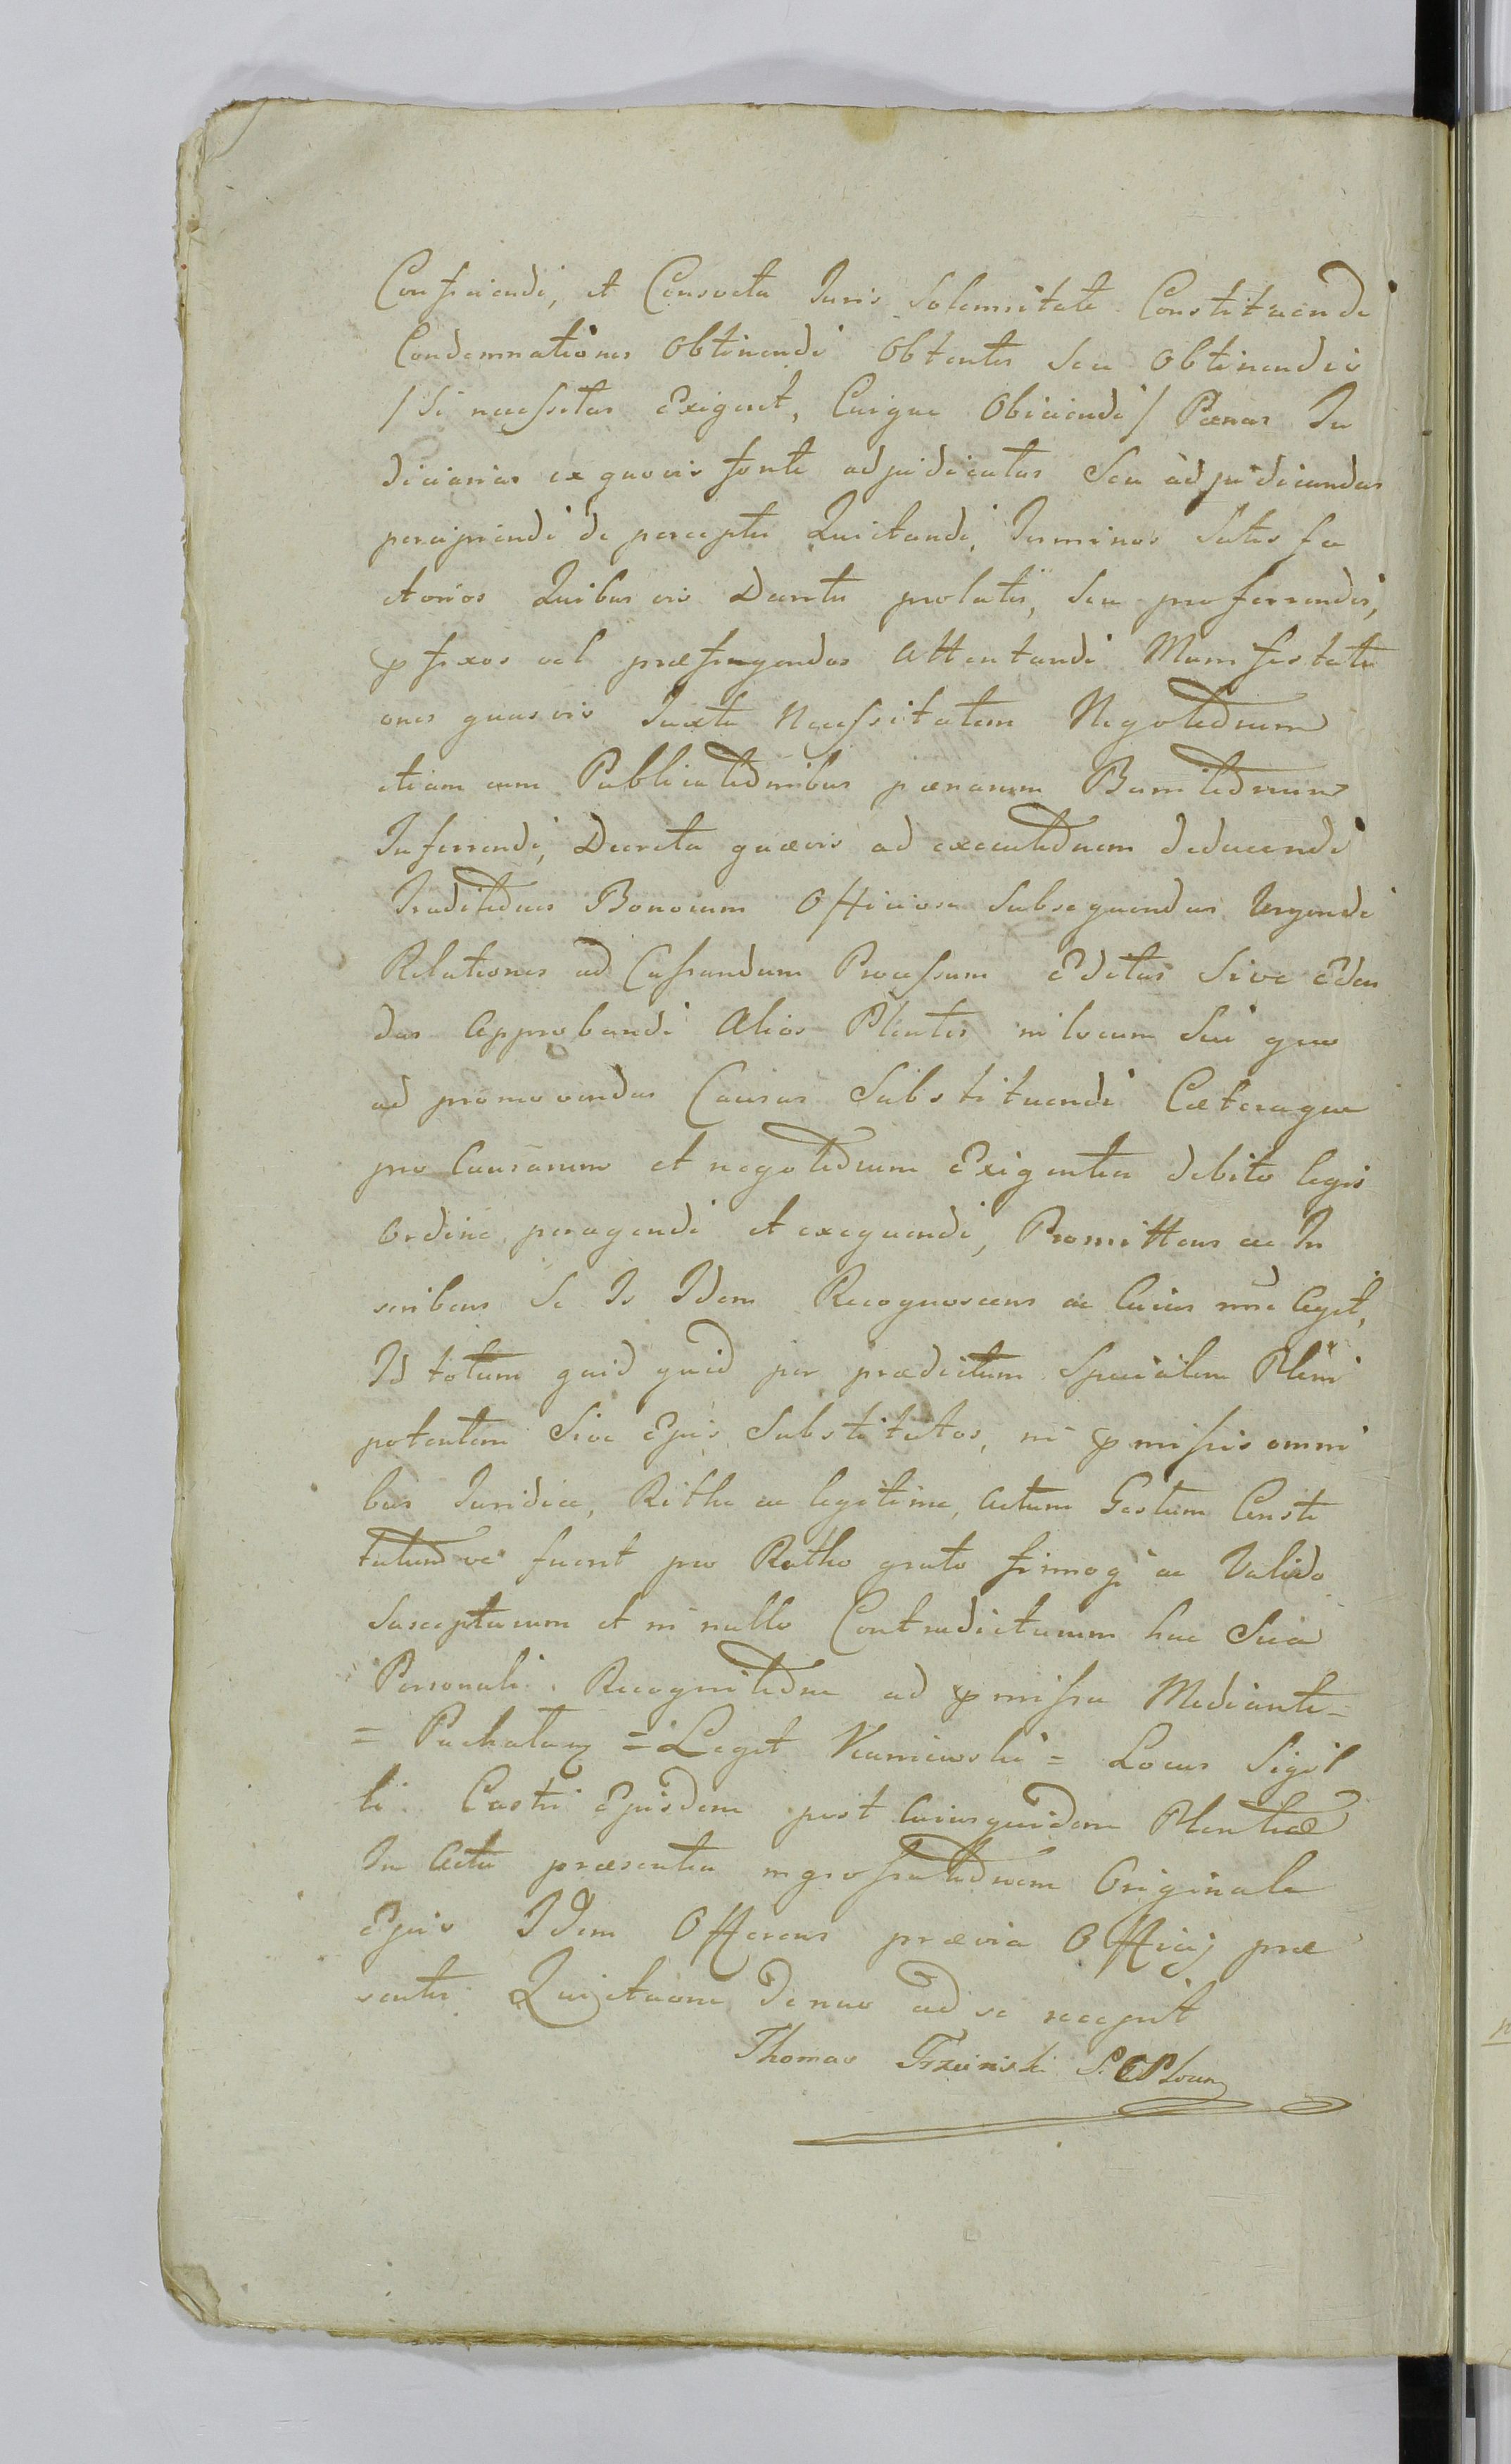 Conficiendi, et Consveta Juris Solemnitate Constituendi
Condemnationes Obtinendi Obtentis seu Obtinendis
/ si necessitas Exigerit, Cuique Obiiciendi / Pænas Ju
diciarias ex quovis fonte adjudicatas seu adjudicandas
percipiendi de perceptis Quietandi, Terminos Satis fa
ctorios Quibusvis Decretis prolatis, seu proferrendis,
pfixos vel præfingendos Attentandi Manifestati
ones quasvis Juxta Necessitatem Negotiõnum
etiam cum Publicatiõnibus pænarum Banitiõnum
Inferrendi, Decreta quævis ad executiõnem deducendi
Traditiõnes Bonorum Officiose Subsequendas Urgendi
Relationes ad Cassandum Processum Editas Sive Eden
das Approbandi Alios Plentes in locum Sui quo
ad promovendas Causas Substituendi Cæteraque
pro Causarum et negotiõnum Exigentia debito legis
Ordine peragendi et exequendi, Promittens ac In
scribens Se Is Idem Recognoscens ac Cuius nrẽ Aget,
Id totum quid quid per prædictum Specialem Pleni
potentem Sive Ejus Substitutos, in pmissis omni
bus Juridice, Rithe ac legitime, Actum Gestum Consti
tutumve fuerit pro Ratho grato firmoq ac Valido
Suscepturum et in nullo Contradicturum hac Sua
Personali Recognitiõne ad pmissa Mediante =
= Puchalang = Legit Kaniewski = Locus Sigil
li Castri Ejusdem post Cuiusquidem Plentiæ
In Acta præsentia ingrossatiõnem Originale
Ejus Idem Offerens prævia Officij præ
sentis Quietatione denuo ad se recepit
Thomas Trzciński